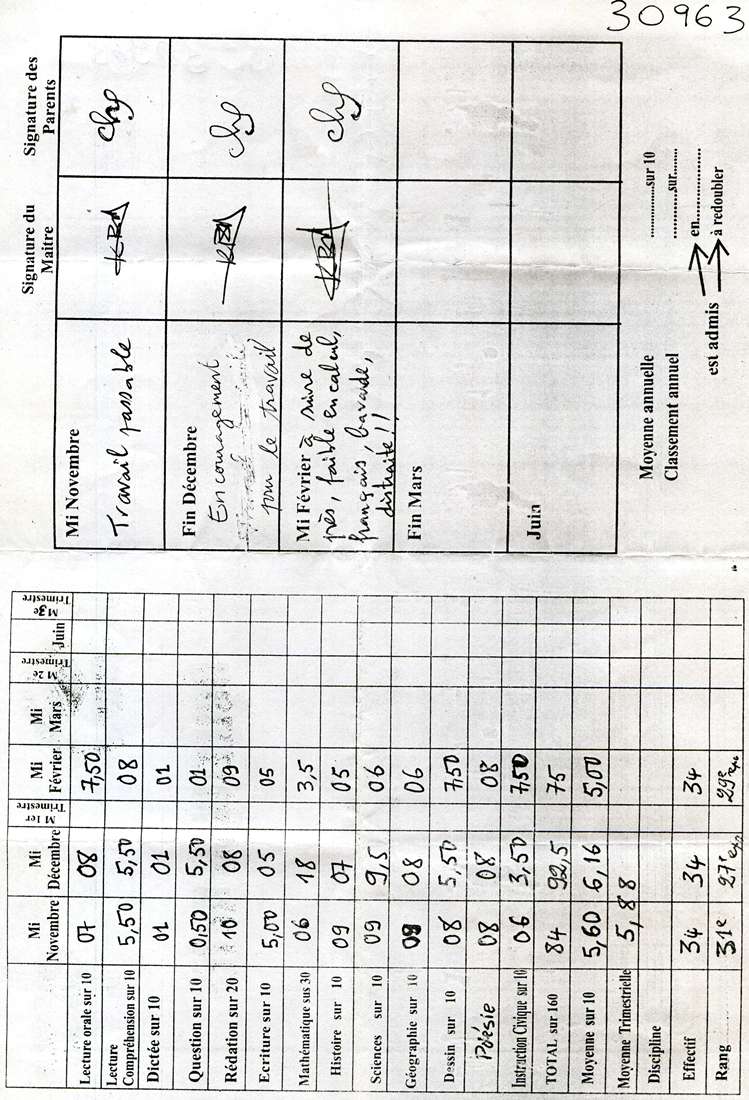 30963
Mi Novembre | Mi Décembre | M 1er Trimestre | Mi Février | Mi Mars | M 2e Trimestre | Juin | M 3e Trimestre
Lecture orale sur 10 | 07 | 08 | 7,50
Lecture Compréhension sur 10 | 5,50 | 5,50 | 08
Dictée sur 10 | 01 | 01 | 01
Question sur 10 | 0,50 | 5,50 | 01
Rédation sur 20 | 10 | 08 | 09
Ecriture sur 10 | 5,00 | 05 | 05
Mathématique sus 30 | 06 | 18 | 3,5
Histoire sur 10 | 09 | 07 | 05
Sciences sur 10 | 09 | 9,5 | 06
Géographie sur 10 | 09 | 08 | 06
Dessin sur 10 | 08 | 5,50 | 7,50
Poésie | 08 | 08 | 08
Instruction Civique sur 10 | 06 | 3,50 | 7,50
TOTAL sur 160 | 84 | 92,5 | 75
Moyenne sur 10 | 5,60 | 6,16 | 5,00
Moyenne Trimestrielle | 5,88
Discipline
Effectif | 34 | 34 | 34
Rang | 31e | 27e exp | 29e exp
Signature du Maitre | Signature des Parents
Mi Novembre
Travail passable
Fin Décembre
Encouragement
pour le travail
Mi Février à suivre de
près, faible en calcul,
français, bavarde,
distraite!!
Fin Mars
Juin
Moyenne annuelle ..............sur 10
Classement annuel ..............sur.........
est admis en...................
à redoubler